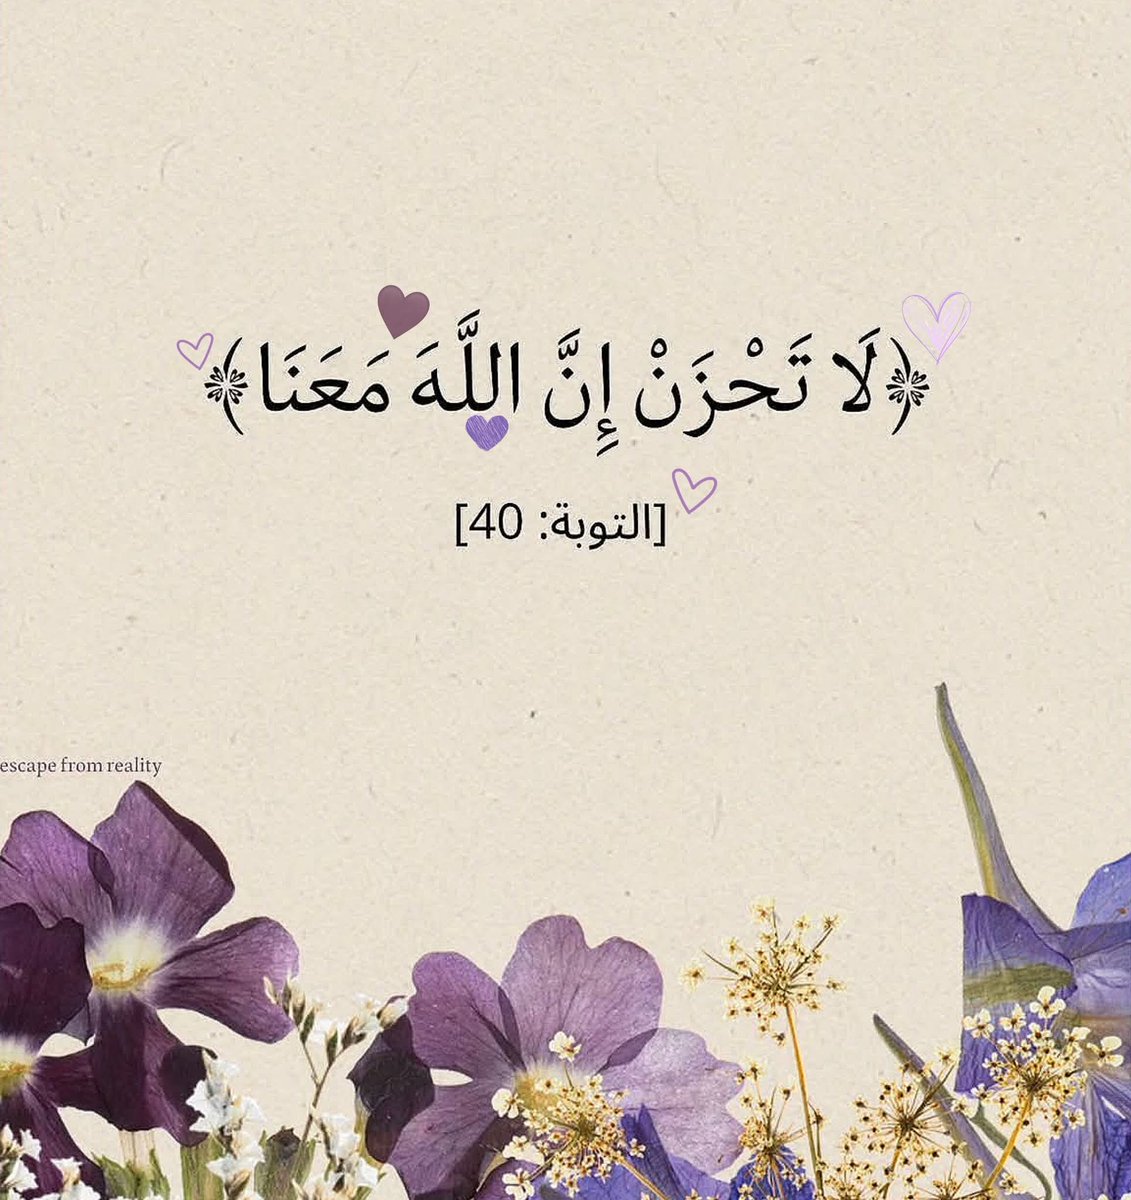 ﴿لَا تَحْزَنْ إِنَّ اللَّهَ مَعَنَا﴾
[التوبة: 40]
escape from reality